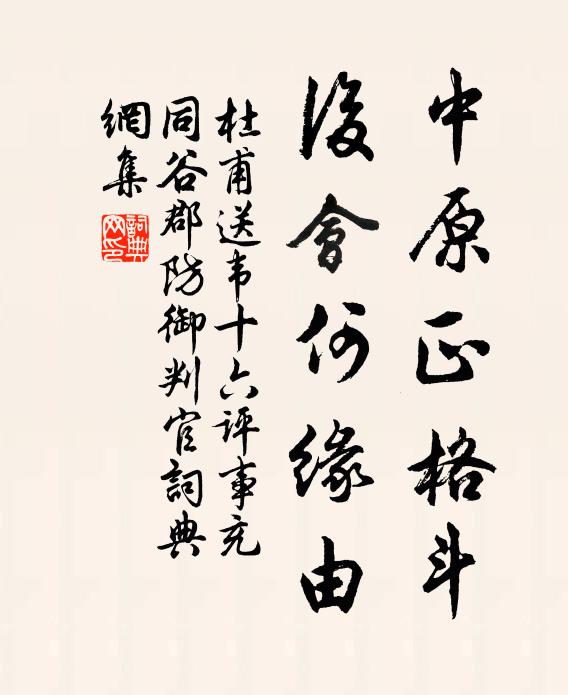 中原正格斗
後會何緣由
杜甫送韦十六评事充
同谷郡防御判官詞典
網集
詞典
网印